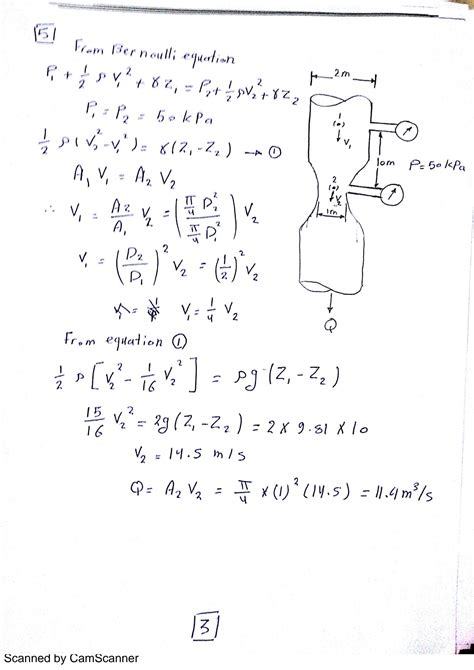 5
From Bernoulli equation
P₁ + 1/2 ρ V₁² + γ Z₁ = P₂ + 1/2 ρ V₂² + γ Z₂
P₁ = P₂ = 50 kPa
1/2 ρ (V₂² - V₁²) = γ (Z₁ - Z₂) → ①
A₁ V₁ = A₂ V₂
∴ V₁ = A₂/A₁ V₂ = (π/4 D₂² / π/4 D₁²) V₂
V₁ = (D₂/D₁)² V₂ = (1/2)² V₂
V₁ = 1/4 V₂
From equation ①
1/2 ρ [V₂² - 1/16 V₂²] = ρg (Z₁ - Z₂)
15/16 V₂² = 2g (Z₁ - Z₂) = 2 x 9.81 x 10
V₂ = 14.5 m/s
Q = A₂ V₂ = π/4 x (1)² (14.5) = 11.4 m³/s
2m
1
(o)
V₁
10m
P = 50 kPa
2
(o)
V₂
1m
Q
3
Scanned by CamScanner